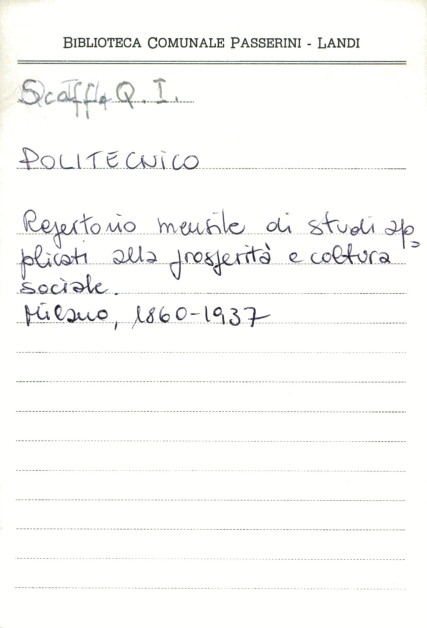 BIBLIOTECA COMUNALE PASSERINI - LANDI
Scaff. Q. I.
POLITECNICO
Repertorio mensile di studi ap=
plicati alla prosperità e coltura
sociale.
Milano, 1860-1937